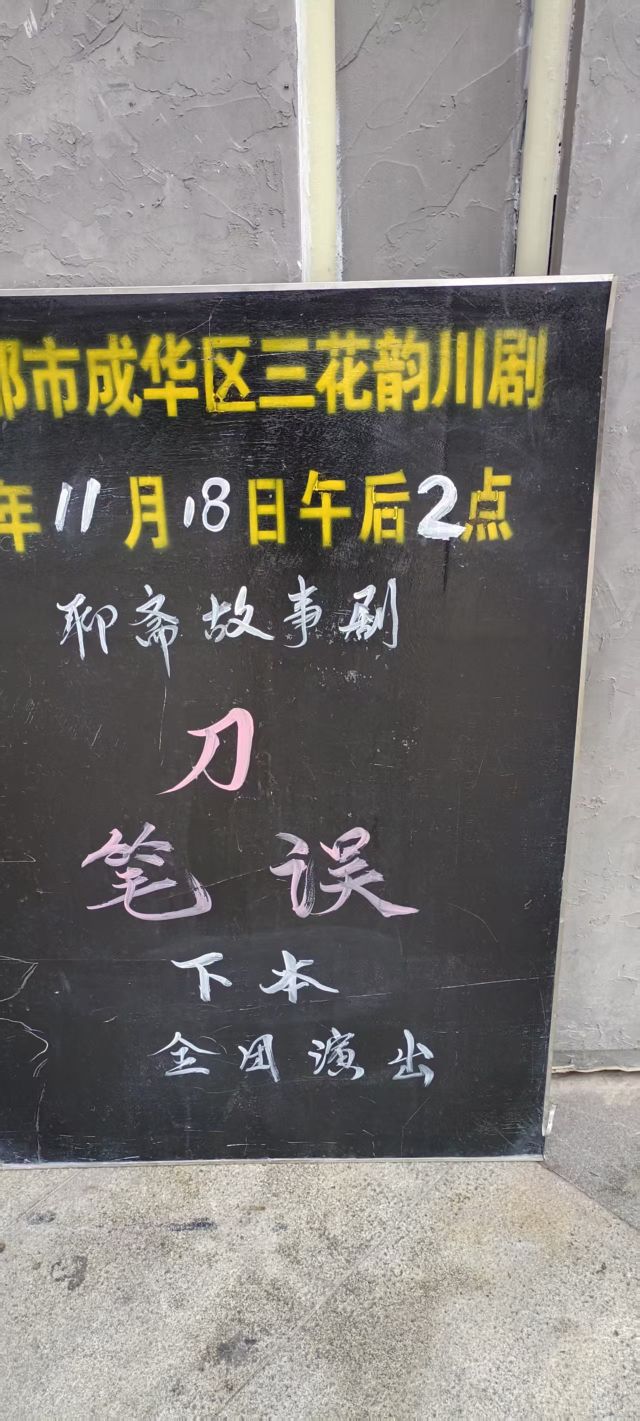 都市成华区三花韵川剧
年11月18日午后2点
聊斋故事剧
刀
笔误
下本
全团演出